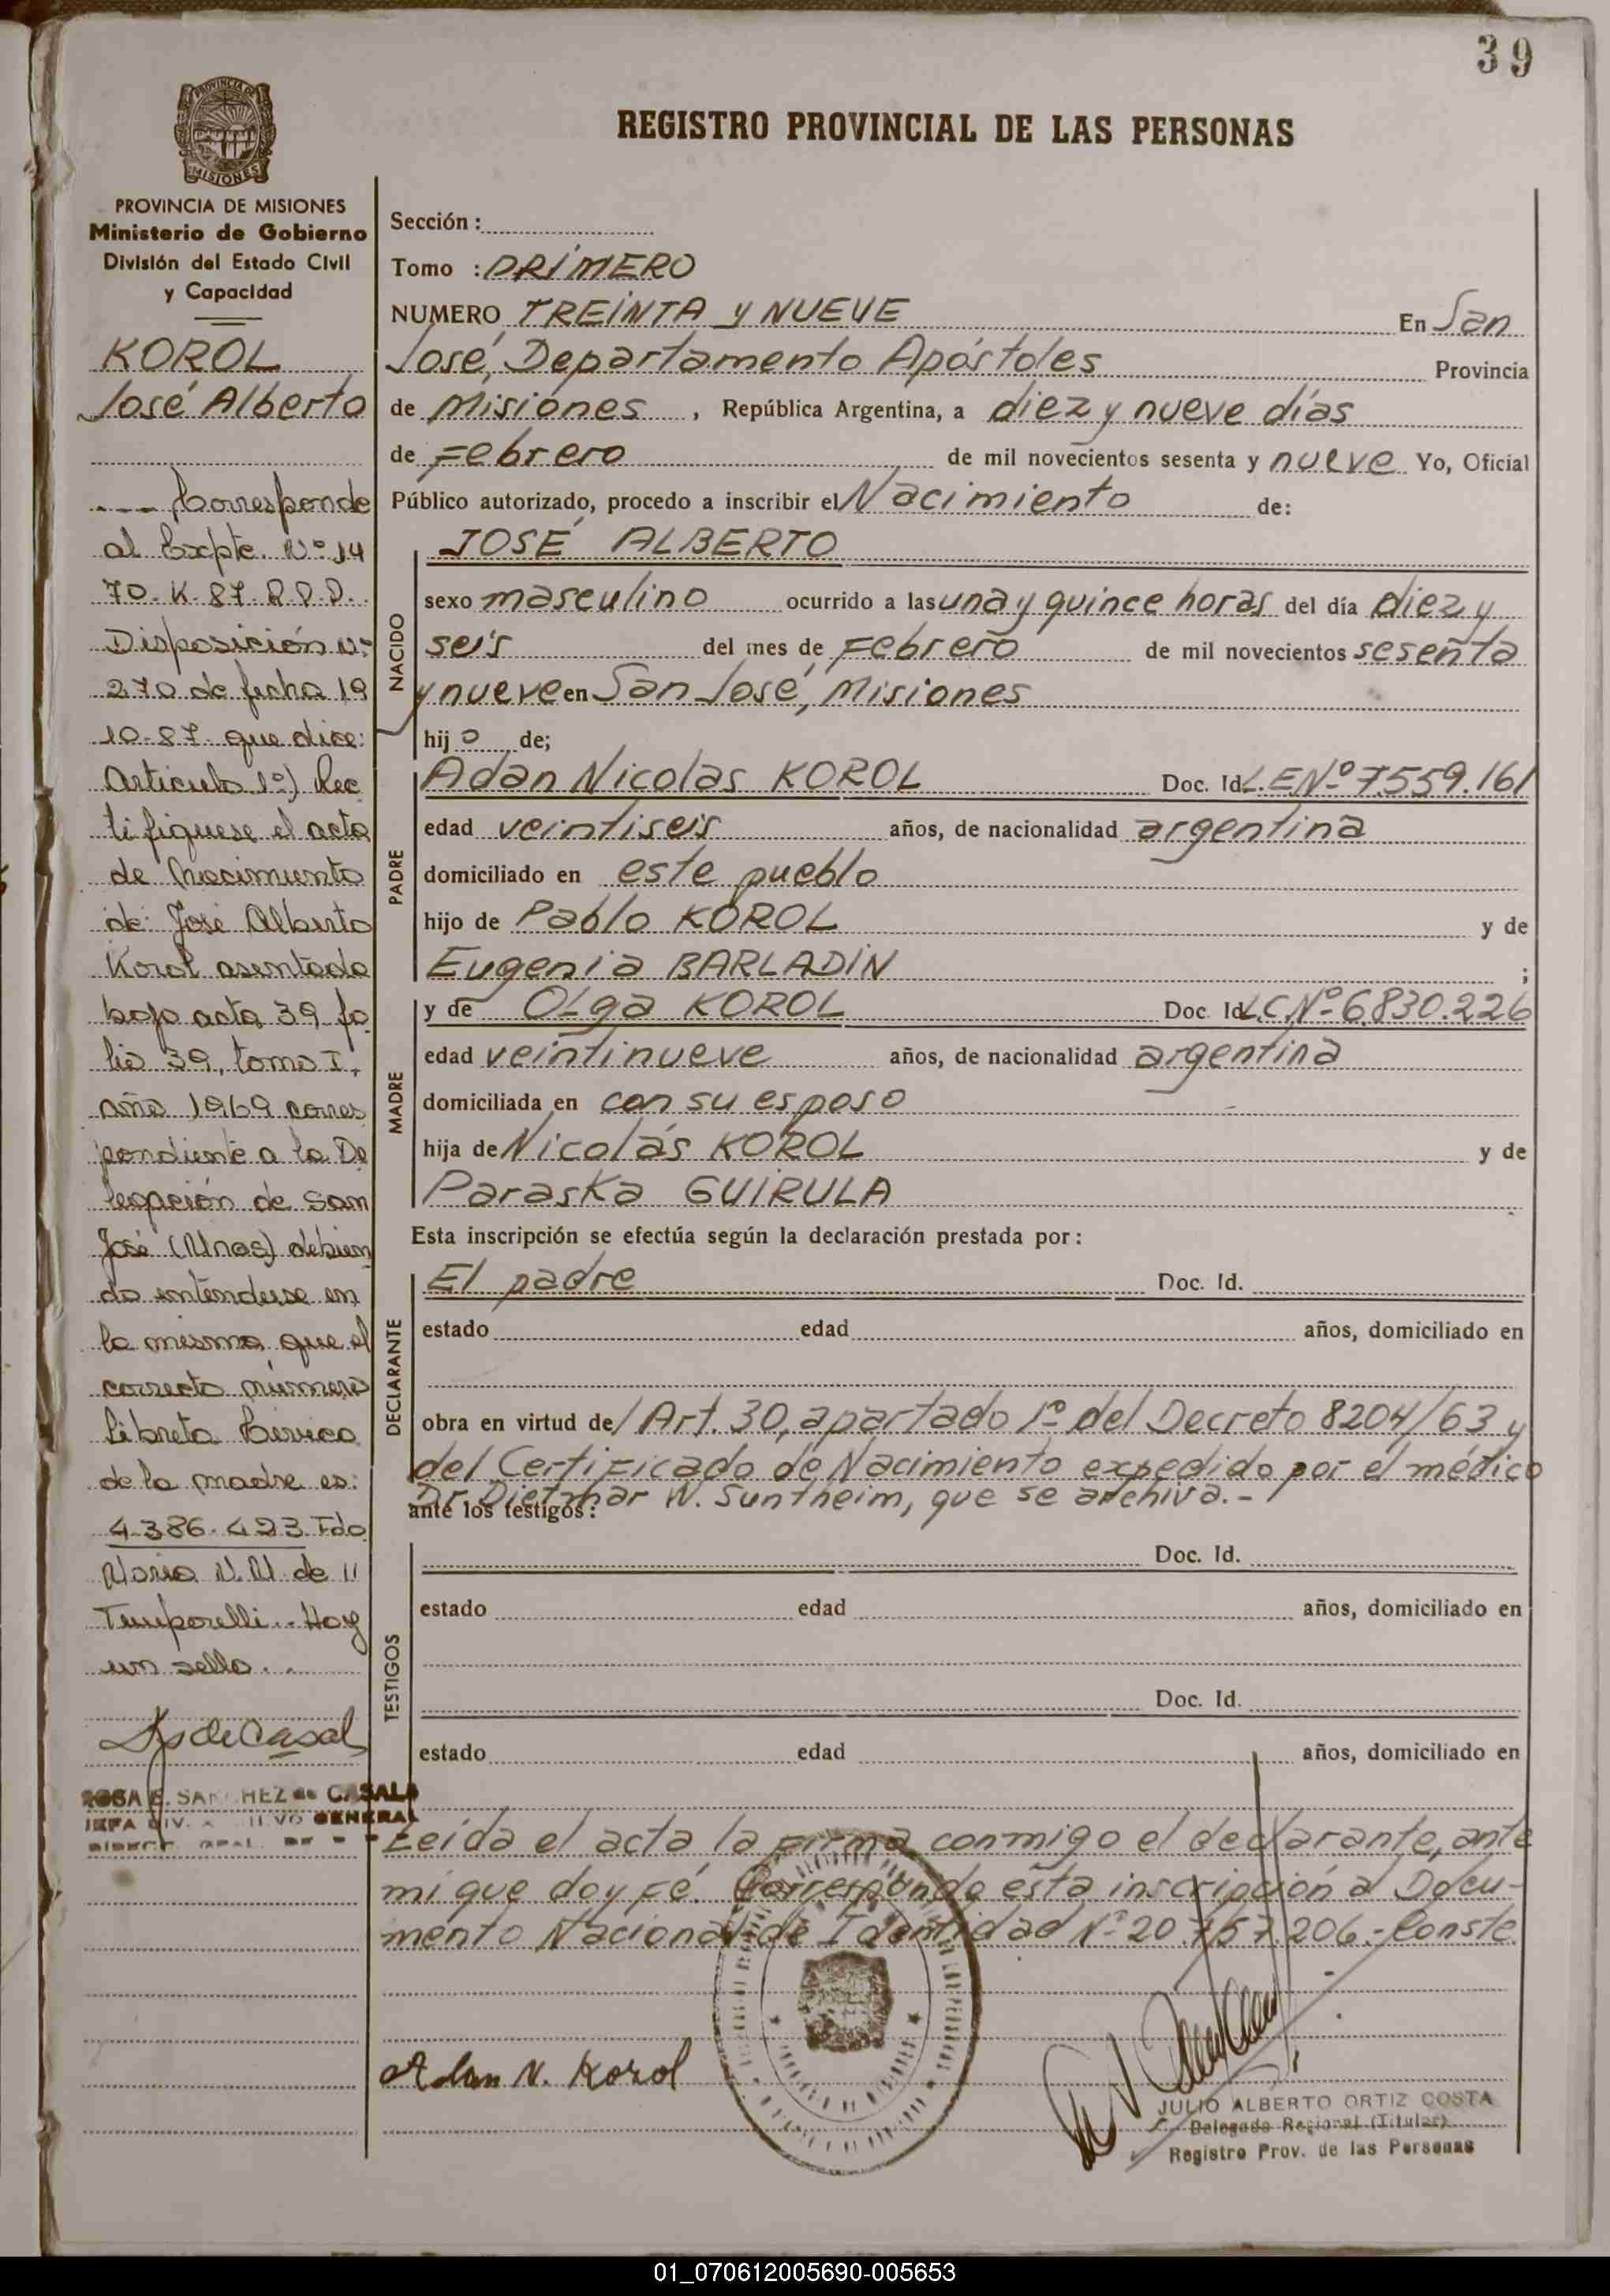 39
PROVINCIA DE
MISIONES
REGISTRO PROVINCIAL DE LAS PERSONAS
PROVINCIA DE MISIONES
Ministerio de Gobierno
División del Estado Civil
y Capacidad
KOROL
José Alberto
---- Corresponde
al Expte. Nº 14
70-K-87 R.P.P.
Disposición Nº
270 de fecha 19
10-87 que dice:
Articulo 1º) Rec
tifiquese el acta
de Nacimiento
de: José Alberto
Korol asentada
bajo acta 39 fo
lio 39, tomo I,
año 1969 corres
pondiente a la De
legación de San
José (Mnes) debien
do entenderse en
la misma que el
correcto número
Libreta Civica
de la madre es:
4.386.423 Fdo
Maria N.M. de
Temporelli.- Hay
un sello..
ROSA E. SANCHEZ de CASALA
JEFA DIV. GENERAL
Sección :
Tomo : PRIMERO
NUMERO TREINTA y NUEVE En San
José, Departamento Apóstoles Provincia
de Misiones , República Argentina, a diez y nueve días
de Febrero de mil novecientos sesenta y nueve Yo, Oficial
Público autorizado, procedo a inscribir el Nacimiento de:
NACIDO
JOSÉ ALBERTO
sexo masculino ocurrido a las una y quince horas del día diez y
seis del mes de Febrero de mil novecientos sesenta
y nueve en San José, Misiones
hijo de;
PADRE
Adan Nicolas KOROL Doc. Id L.E Nº 7.559.161
edad veintiseis años, de nacionalidad argentina
domiciliado en este pueblo
hijo de Pablo KOROL y de
Eugenia BARLADIN ;
MADRE
y de OLga KOROL Doc. Id L.C. Nº 6.830.226
edad veintinueve años, de nacionalidad argentina
domiciliada en con su esposo
hija de Nicolás KOROL y de
Paraska GUIRULA
Esta inscripción se efectúa según la declaración prestada por :
DECLARANTE
El padre Doc. Id.
estado edad años, domiciliado en
obra en virtud de l Art. 30, apartado 1º del Decreto 8204/63 y
del Certificado de Nacimiento expedido por el médico
Dr. Dietmar W. Suntheim, que se archiva.-
ante los testigos :
TESTIGOS
Doc. Id.
estado edad años, domiciliado en
Doc. Id.
estado edad años, domiciliado en
Leída el acta la firma conmigo el declarante, ante
mi que doy fé. Corresponde esta inscripción a Docu-
mento Nacional de Identidad Nº 20.757.206.- Conste.
Adan N. Korol
JULIO ALBERTO ORTIZ COSTA
Delegado Regional (Titular)
Registro Prov. de las Personas
01_070612005690-005653